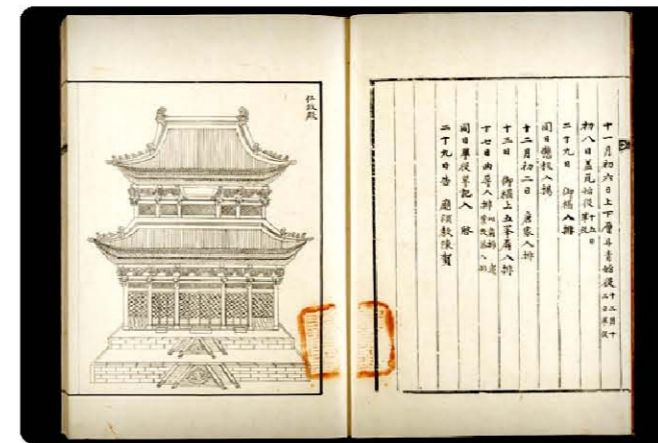 十一月初六日上下層丹青始役 十二月十二日畢役
初八日盖瓦始役 十五日畢役
二十九日 御榻入排
同日懸板入揭
十二月初二日 唐家入排
十三日 御榻上五峯屛入排
十七日 入排
同日畢役單記入 啓
二十九日告 廟頒敎陳賀
仁政殿